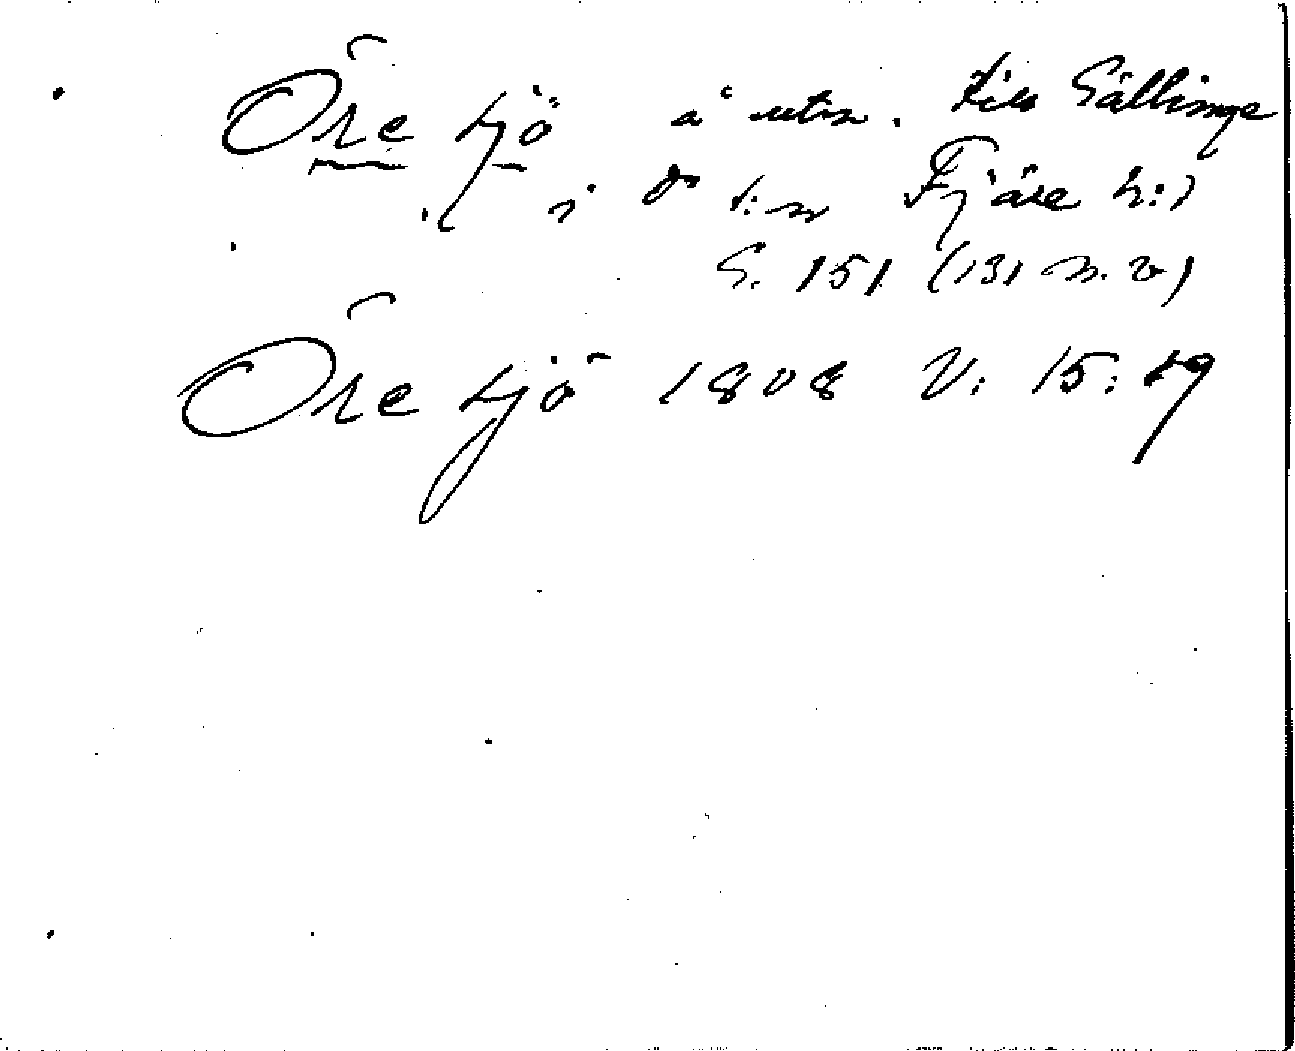 Öre tjö å utm. till Gällinge
i Ds s:n Fjäre h:d
S. 151 (131 n. v.)
Öre tjö 1808 V: 15: 19